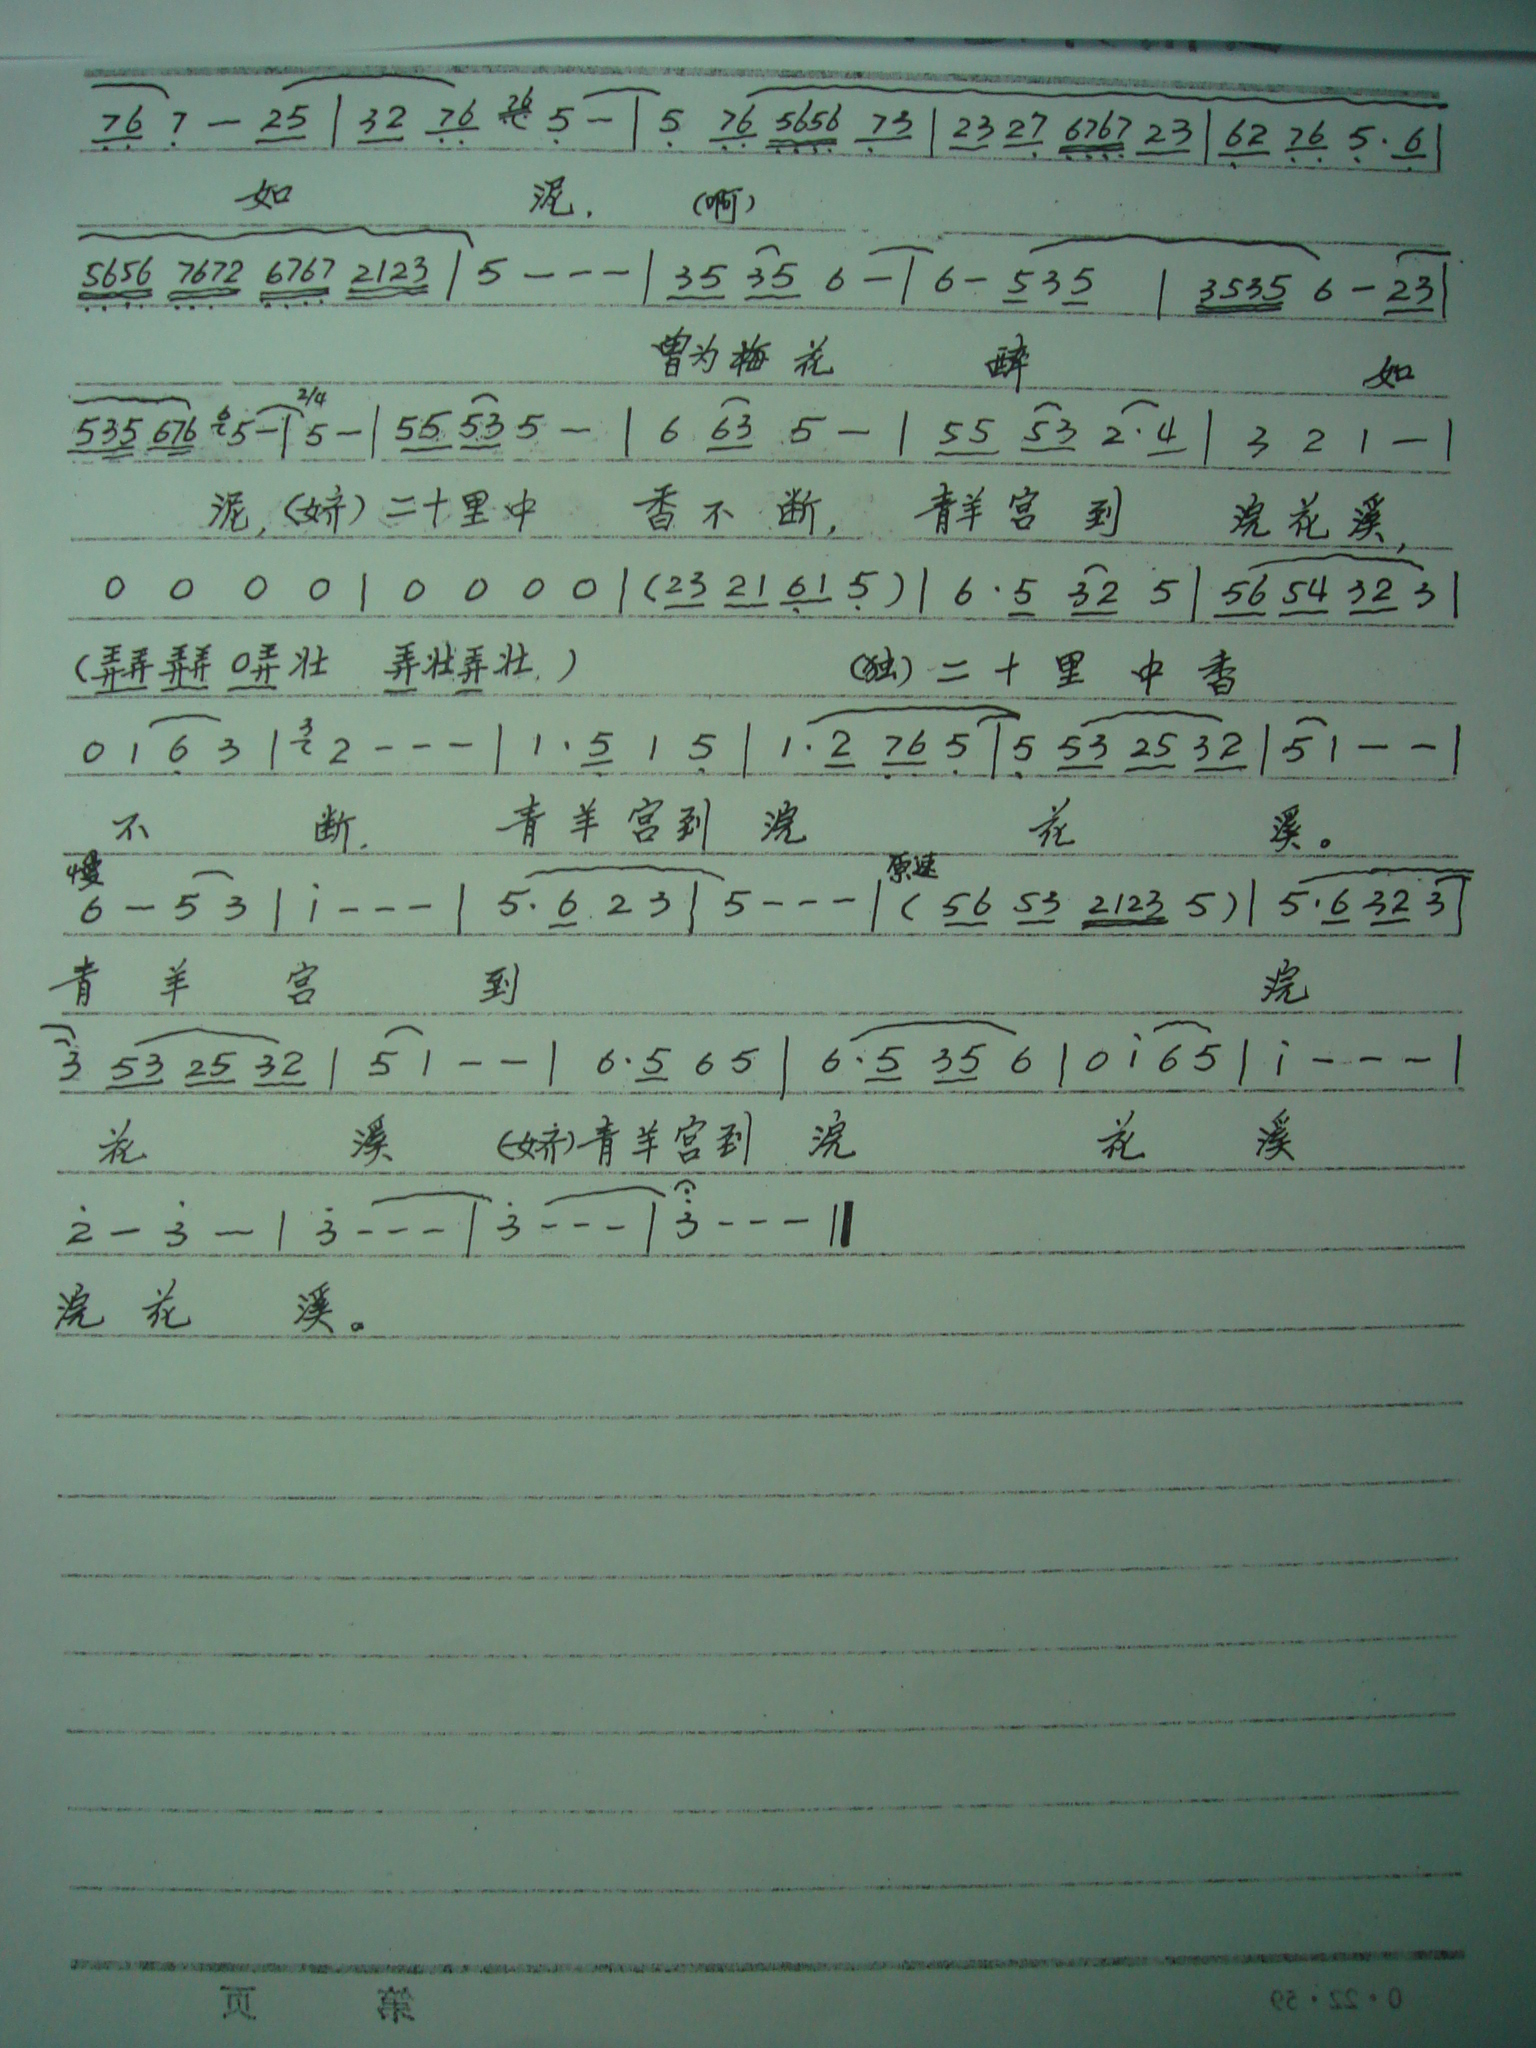 76 7 — 25 | 32 76 5 — | 5 76 5656 73 | 23 27 6767 23 | 62 76 5 · 6 |
如 泥, (啊)
5656 7672 6767 2123 | 5 - - - | 35 35 6 — | 6 - 535 | 3535 6 - 23 |
曾为梅花 醉 如
2/4
535 676 6 5 - | 5 - | 55 53 5 - | 6 63 5 - | 55 53 2·4 | 3 2 1 - |
泥,(娇)二十里中 香不断, 青羊宫到 浣花溪,
0 0 0 0 | 0 0 0 0 | (23 21 61 5) | 6·5 32 5 | 56 54 32 3 |
(弄弄 弄弄 0弄壮 弄壮弄壮) (独)二十里中香
0 1 6 3 | 3 2 - - - | 1·5 1 5 | 1·2 76 5 | 5 53 25 32 | 5 1 - - |
不 断, 青羊宫到 浣 花 溪。
慢 原速
6 — 5 3 | i - - - | 5·6 2 3 | 5 - - - | (56 53 2123 5) | 5·6 32 3 |
青 羊 宫 到 浣
3 53 25 32 | 5 1 - - | 6·5 6 5 | 6·5 35 6 | 0 i 6 5 | i - - - |
花 溪 (娇)青羊宫到 浣 花 溪
2 — 3 — | 3 - - - | 3 - - - | 3 - - - ||
浣 花 溪。
第 页 0·22·59